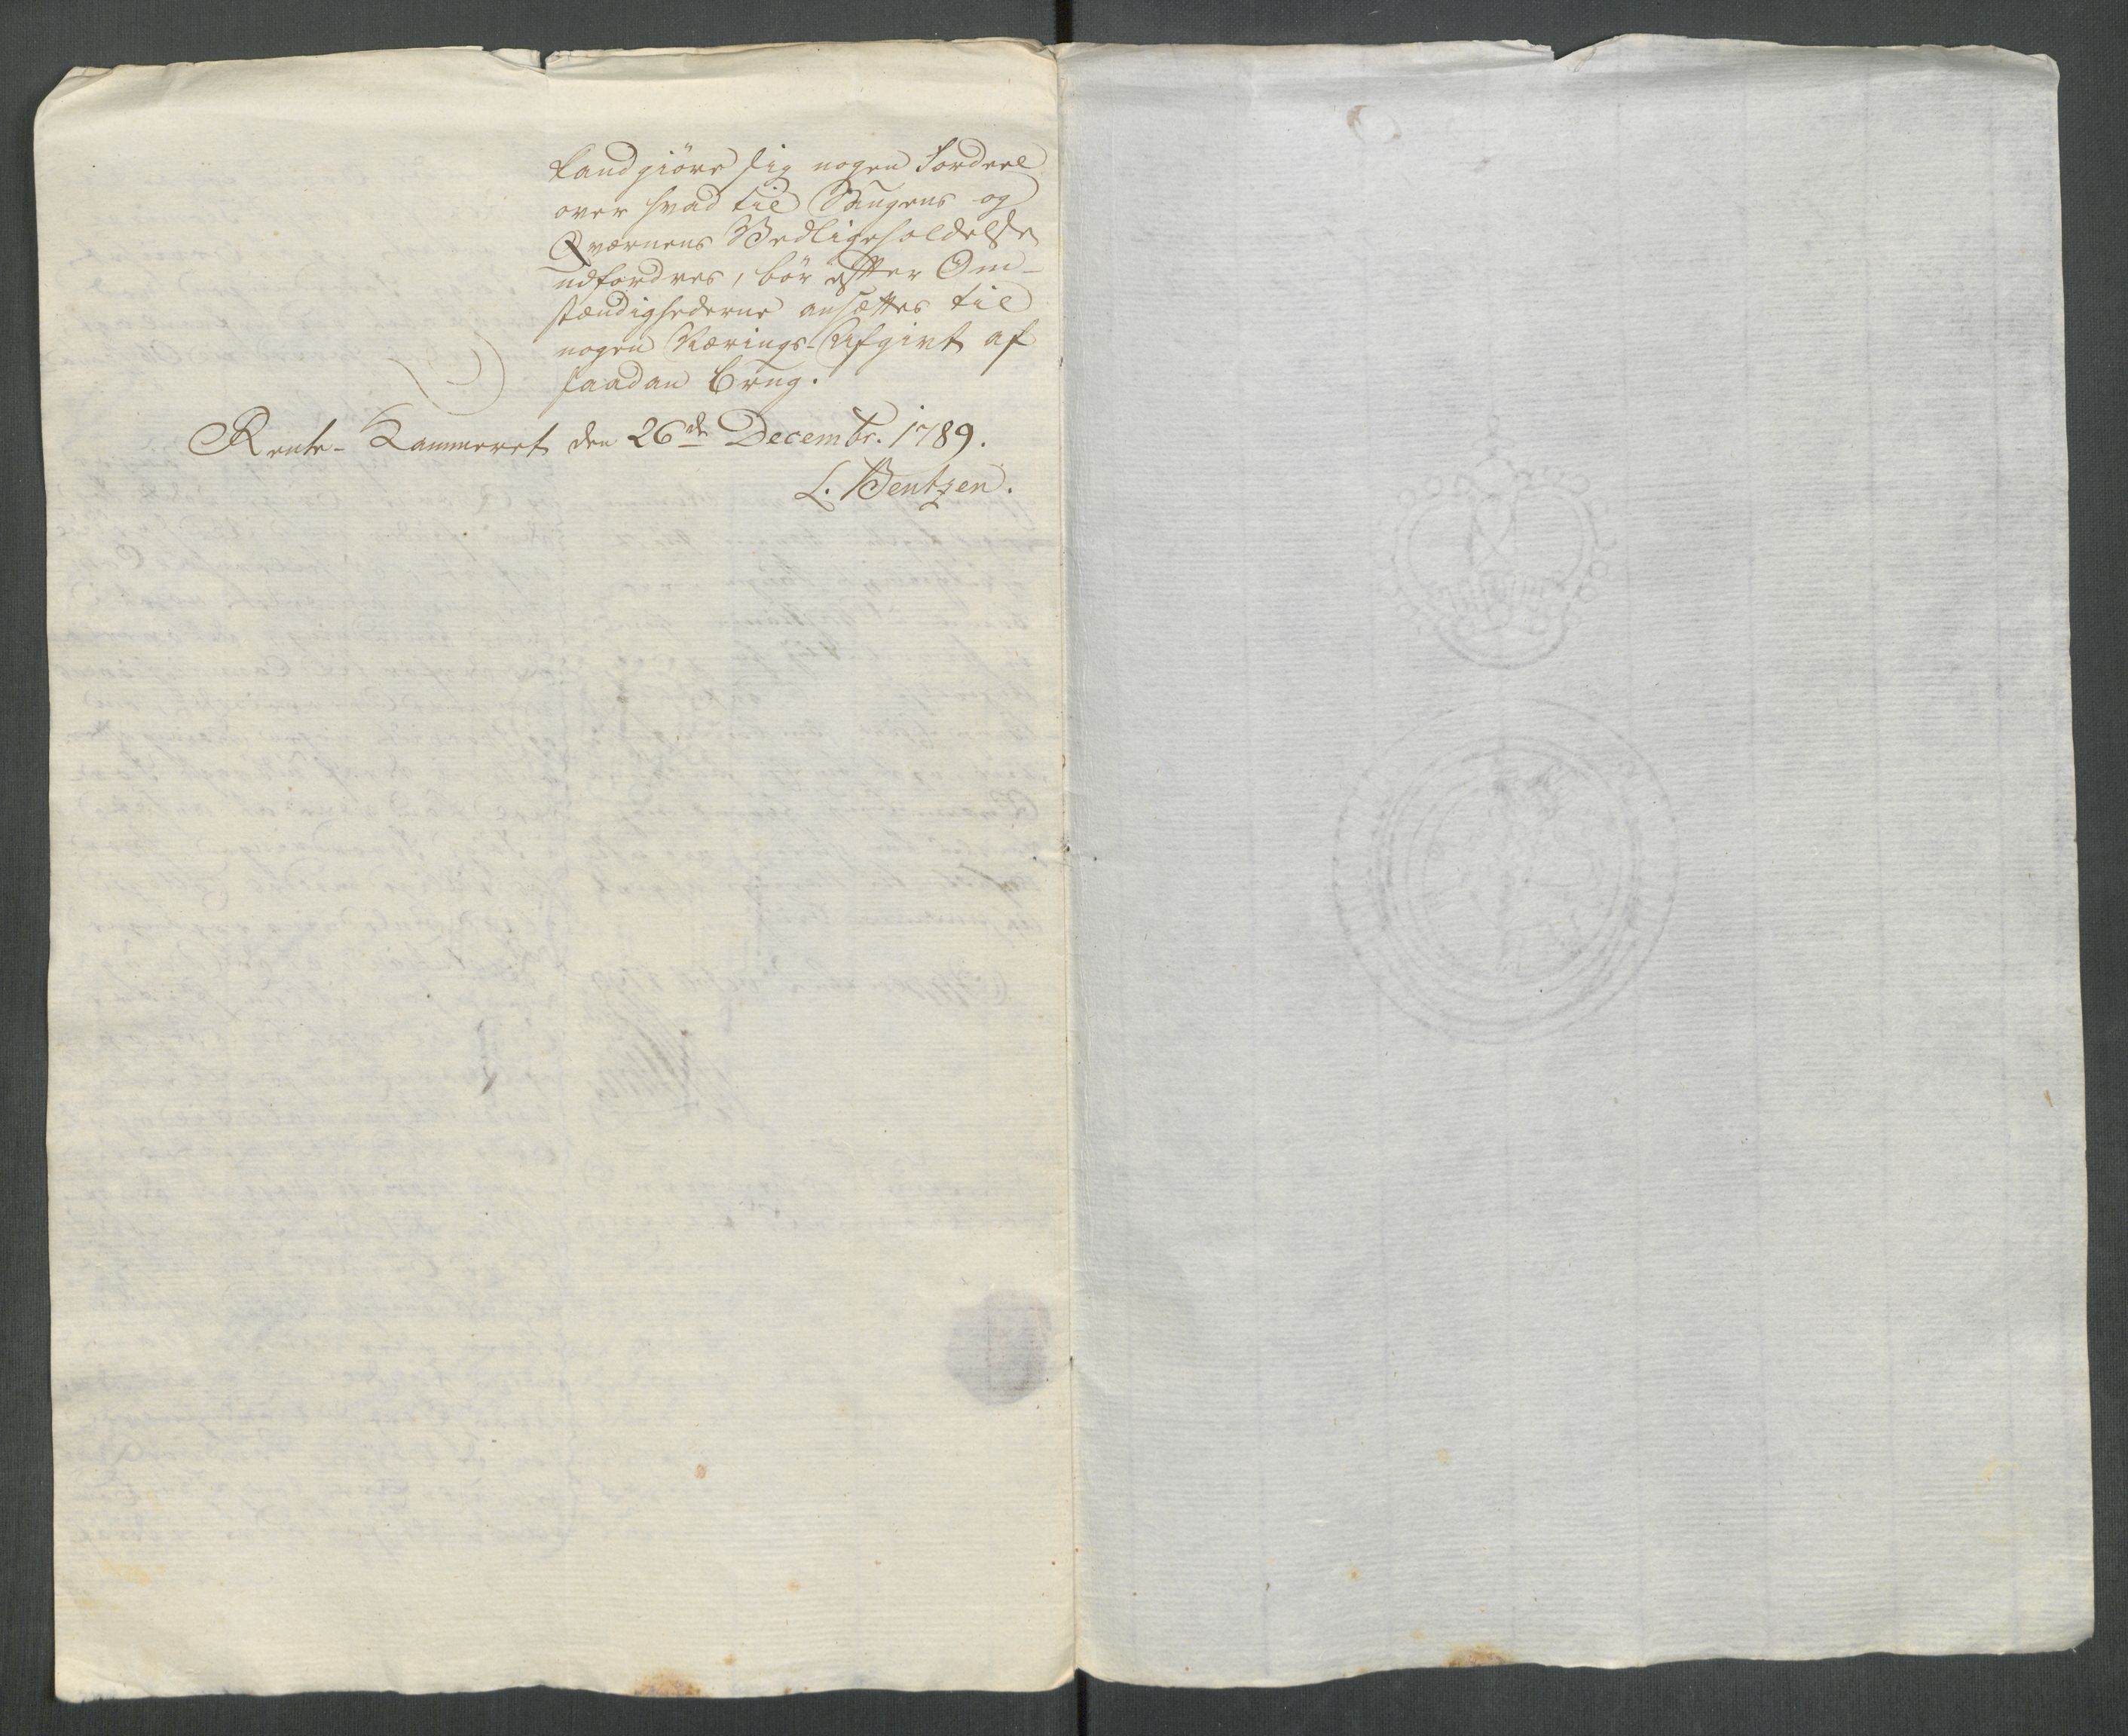 kand giöre sig nogen Fordeel
over hvad til Saugens og
Qværnens Vedligeholdelse
udfordres, bör efter Om-
stændighederne ansættes til
nogen Nærings-Afgivt af
saadan Brug.
Rente-Kammeret den 26de Decembr. 1789.
L. Bentzen.